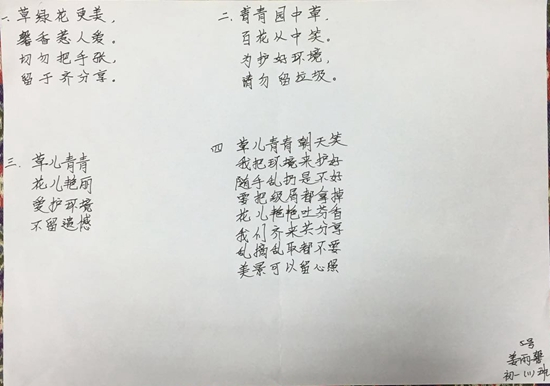 一、草绿花更美，
馨香惹人爱。
切勿把手张，
留于齐分享。
二、青青园中草，
百花从中笑。
为护好环境，
请勿留垃圾。
三、草儿青青
花儿艳丽
爱护环境
不留遗憾
四 草儿青青朝天笑
我把环境来护好
随手乱扔是不好
要把级局都拿掉
花儿艳艳吐芬香
我们齐来共分享
乱摘乱取都不要
美景可以留心照
5号
姜雨馨
初一(11)班